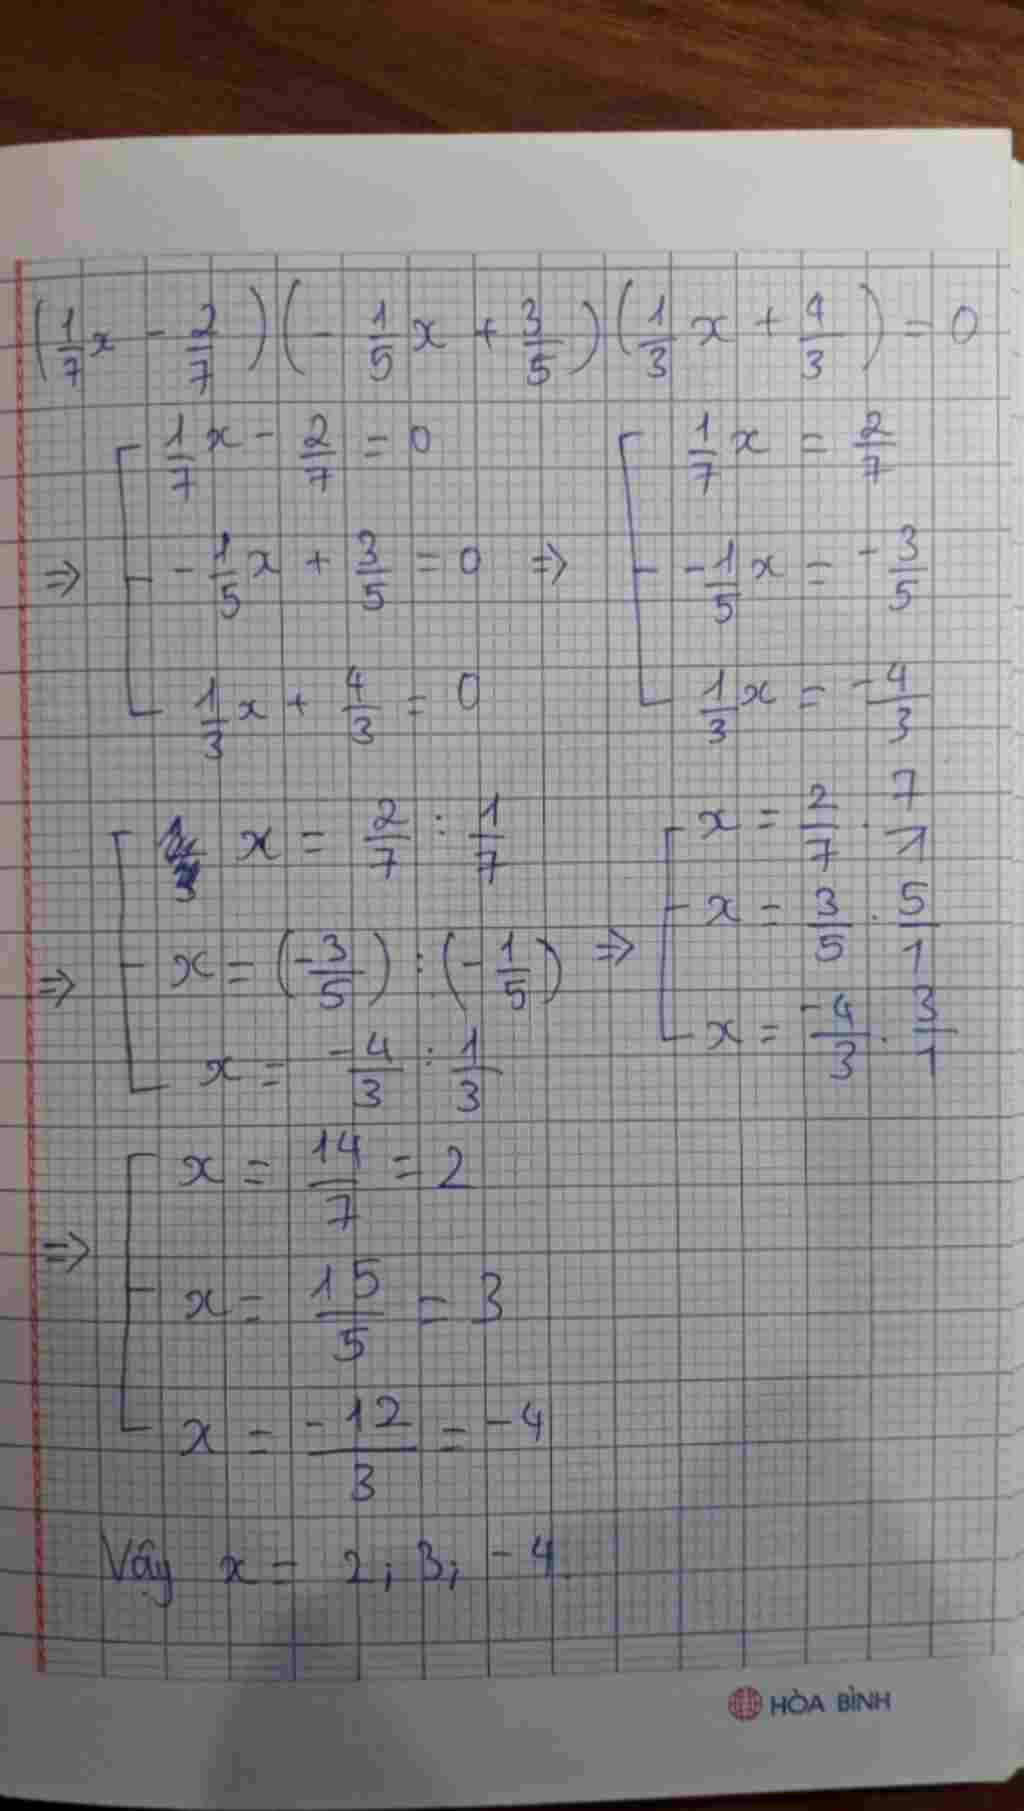 (1/7 x - 2/7)(- 1/5 x + 3/5)(1/3 x + 4/3) = 0
⇒ [ 1/7 x - 2/7 = 0 ; - 1/5 x + 3/5 = 0 ; 1/3 x + 4/3 = 0
⇒ [ 1/7 x = 2/7 ; - 1/5 x = - 3/5 ; 1/3 x = - 4/3
⇒ [ x = 2/7 : 1/7 ; x = (- 3/5) : (- 1/5) ; x = -4/3 : 1/3
⇒ [ x = 2/7 . 7/1 ; x = 3/5 . 5/1 ; x = -4/3 . 3/1
⇒ [ x = 14/7 = 2 ; x = 15/5 = 3 ; x = -12/3 = -4
Vậy x = 2; 3; -4
HÒA BÌNH